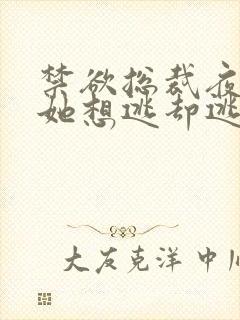 禁欲总裁夜
她想逃却逃
大友克洋 中川